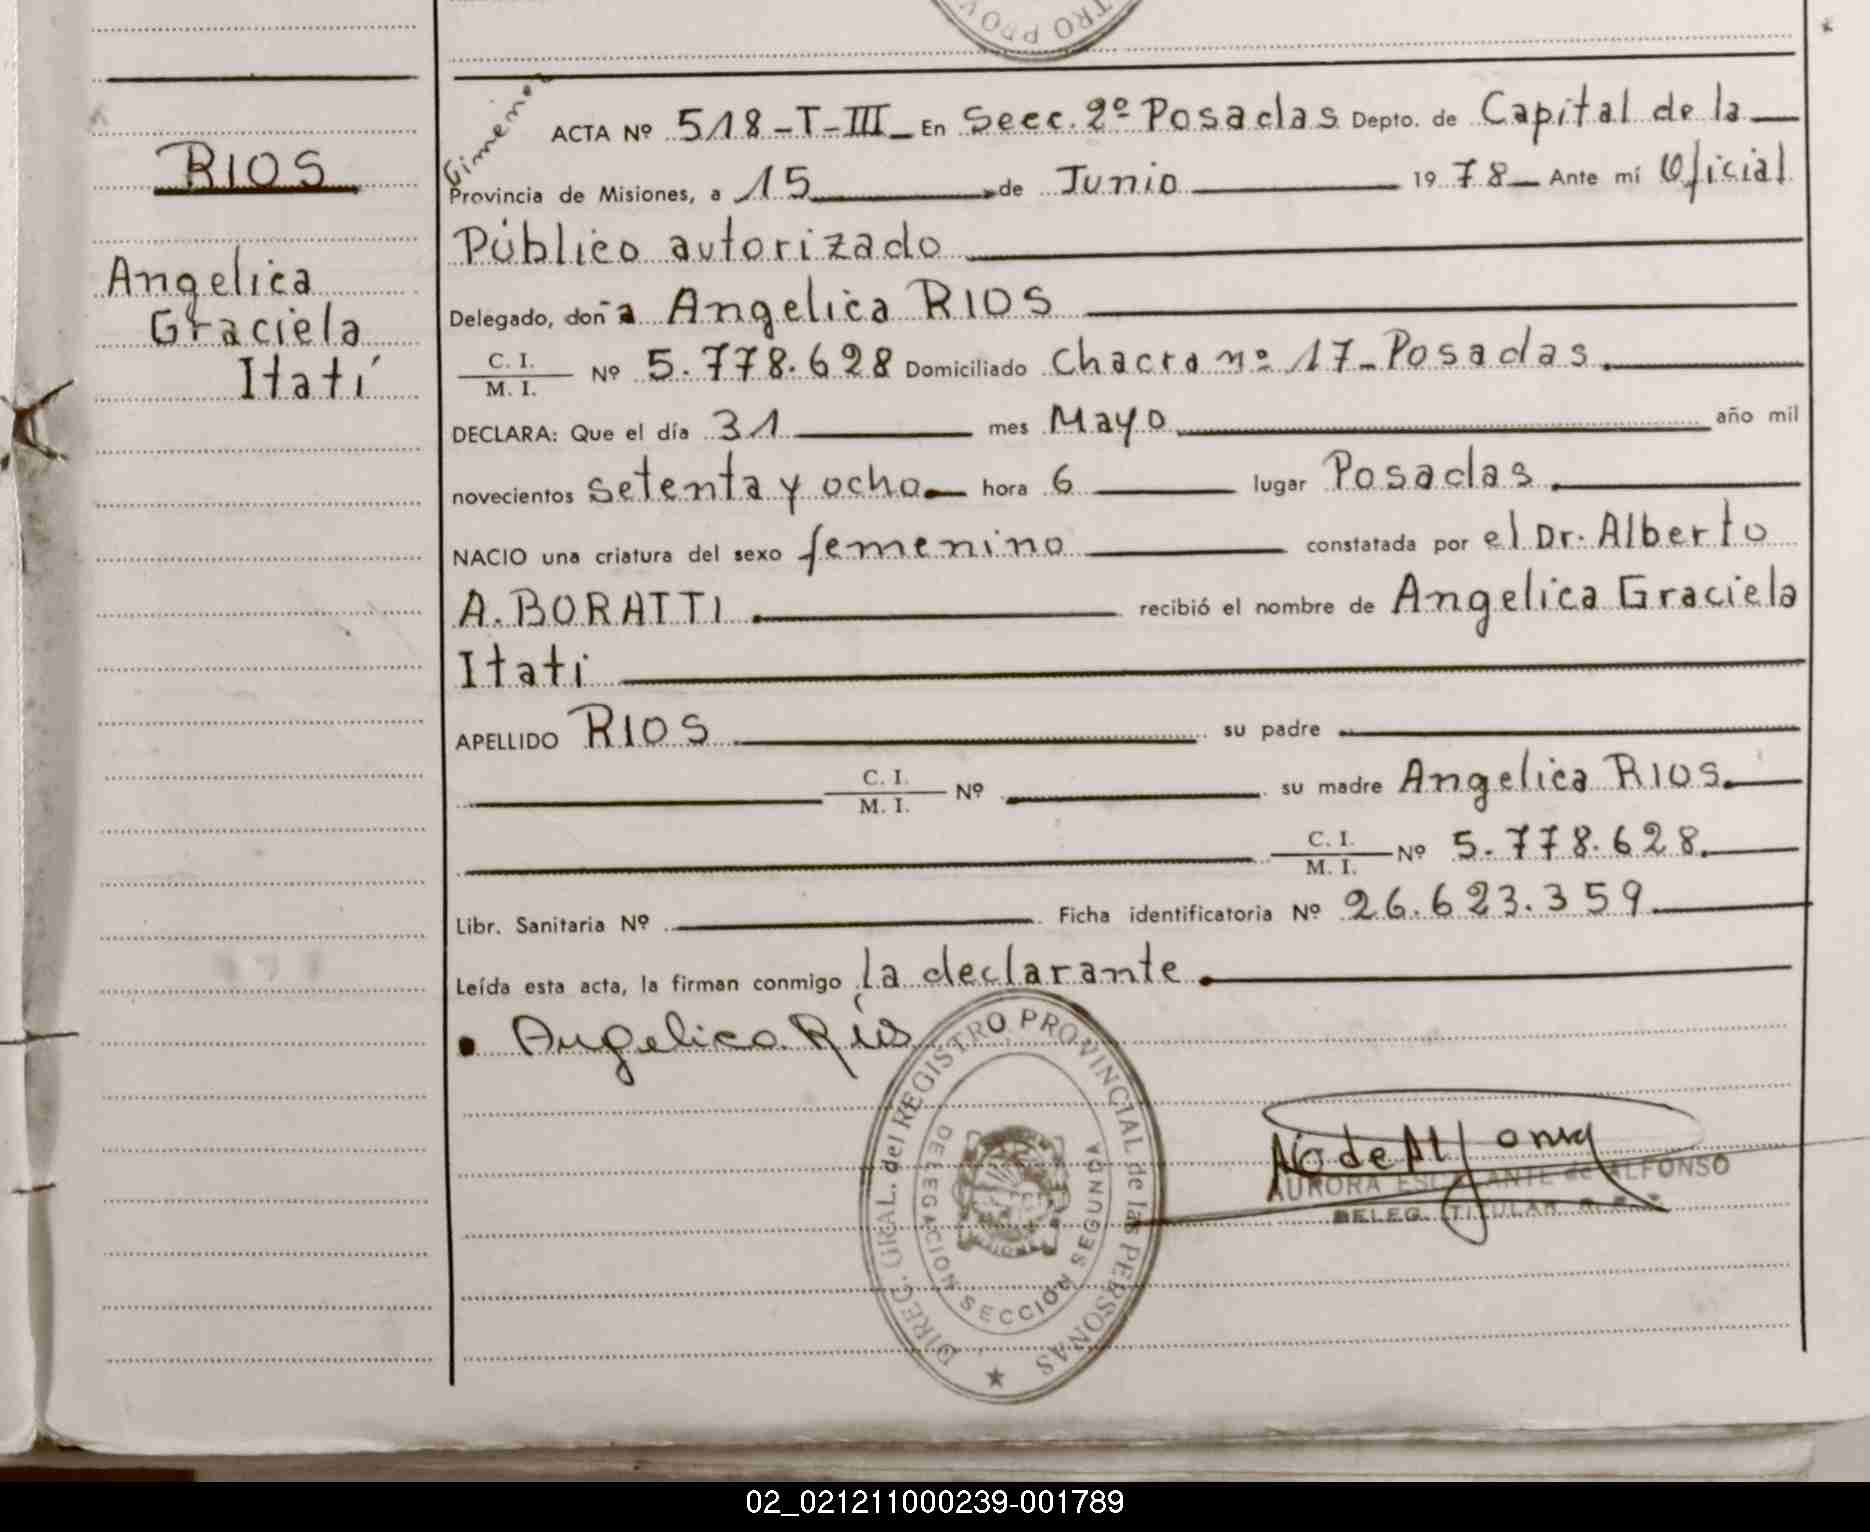 TRO PROV
Gimenez
ACTA Nº 518-T-III_ En Secc. 2º Posadas Depto. de Capital de la
RIOS
Provincia de Misiones, a 15 de Junio 1978 Ante mí Oficial
Público autorizado
Angelica
Graciela
Itatí
Delegado, doña Angelica RIOS
C. I.
M. I. Nº 5.778.628 Domiciliado Chacra nº 17-Posadas.
DECLARA: Que el día 31 mes Mayo año mil
novecientos setenta y ocho hora 6 lugar Posadas
NACIO una criatura del sexo femenino constatada por el Dr. Alberto
A. BORATTI recibió el nombre de Angelica Graciela
Itati
APELLIDO RIOS su padre
C. I.
M. I. Nº su madre Angelica RIOS.
C. I.
M. I. Nº 5.778.628.
Libr. Sanitaria Nº Ficha identificatoria Nº 26.623.359
Leída esta acta, la firman conmigo la declarante.
Angelica Ríos
DIREC. GRAL. del REGISTRO PROVINCIAL de las PERSONAS
DELEGACION SECCIÓN SEGUNDA
MISIONES
A E de Alfonso
AURORA ESCALANTE de ALFONSO
DELEG. TITULAR
02_021211000239-001789